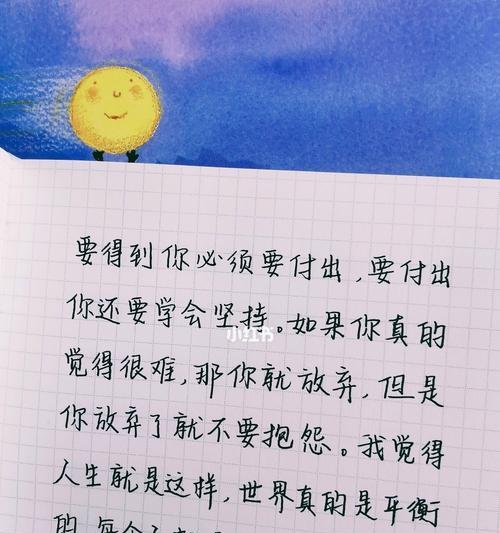 要得到你必须要付出，要付出
你还要学会坚持。如果你真的
小红书
觉得很难，那你就放弃，但是
你放弃了就不要抱怨。我觉得
人生就是这样，世界真的是平衡
的